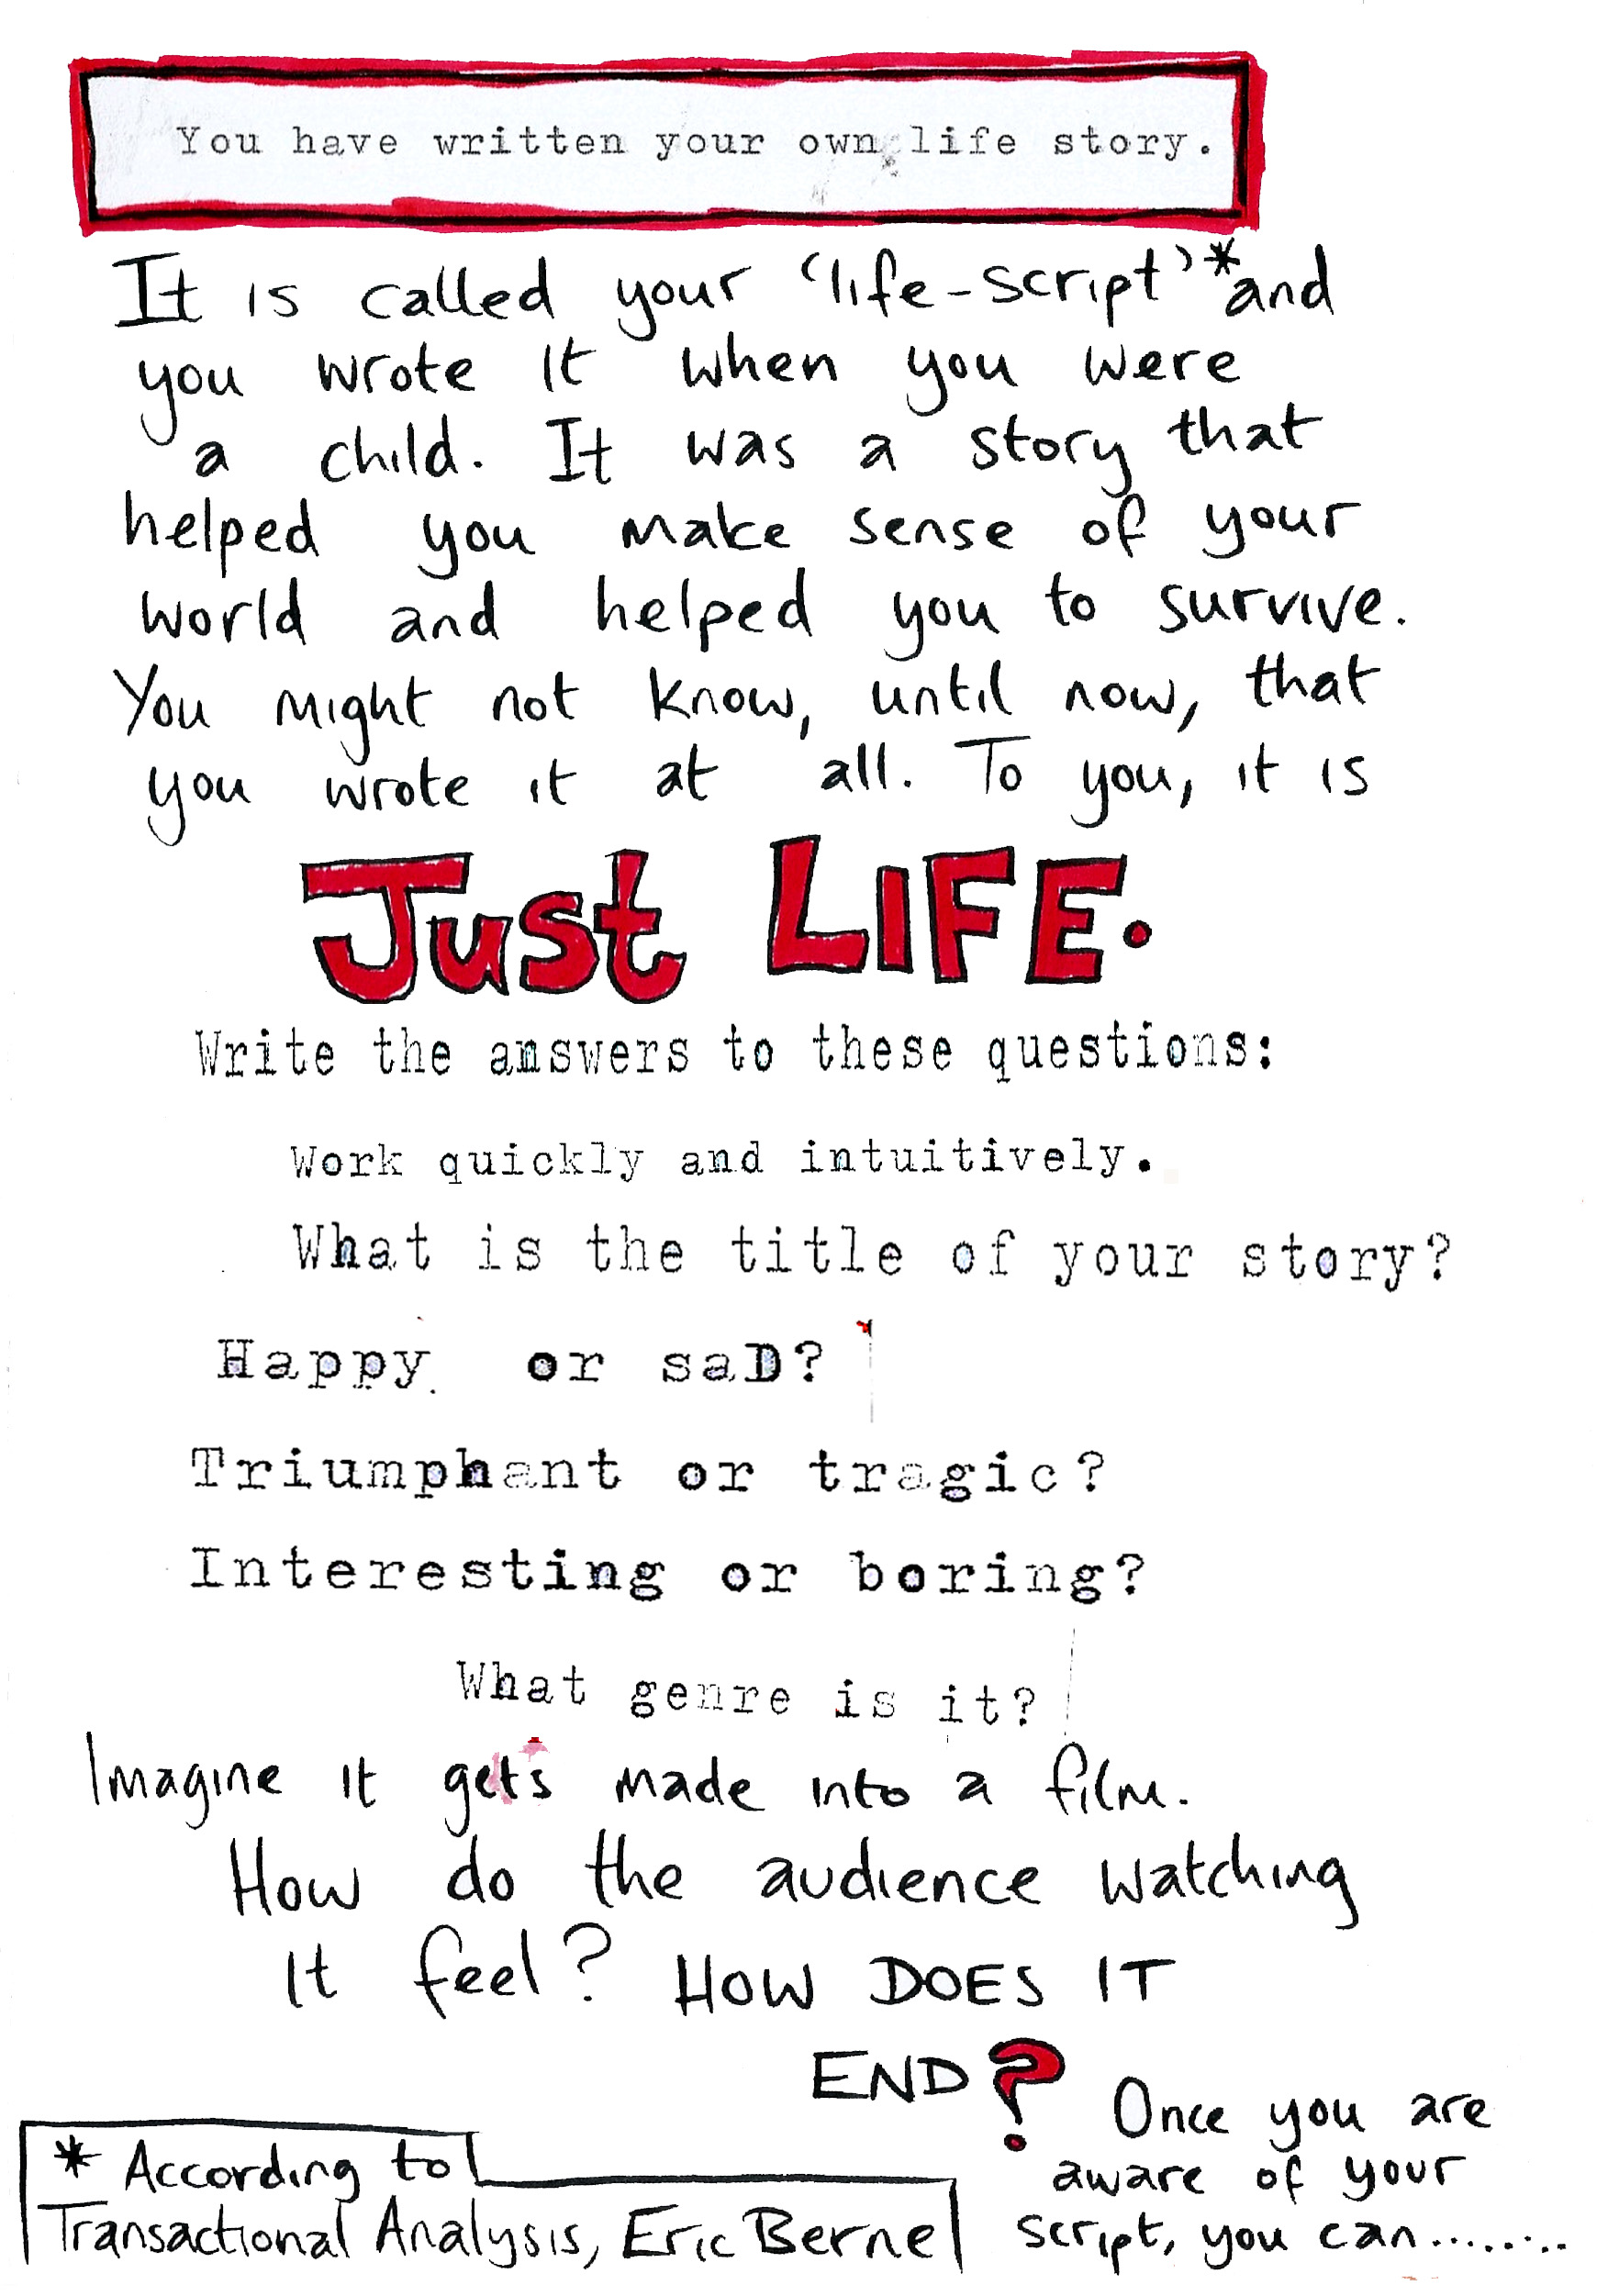 You have written your own life story.
It is called your 'life-script'* and
you wrote it when you were
a child. It was a story that
helped you make sense of your
world and helped you to survive.
You might not know, until now, that
you wrote it at all. To you, it is
Just LIFE.
Write the answers to these questions:
Work quickly and intuitively.
What is the title of your story?
Happy or saD?
Triumphant or tragic?
Interesting or boring?
What genre is it?
Imagine it gets made into a film.
How do the audience watching
it feel? HOW DOES IT
END?
Once you are
aware of your
script, you can........
* According to
Transactional Analysis, Eric Berne